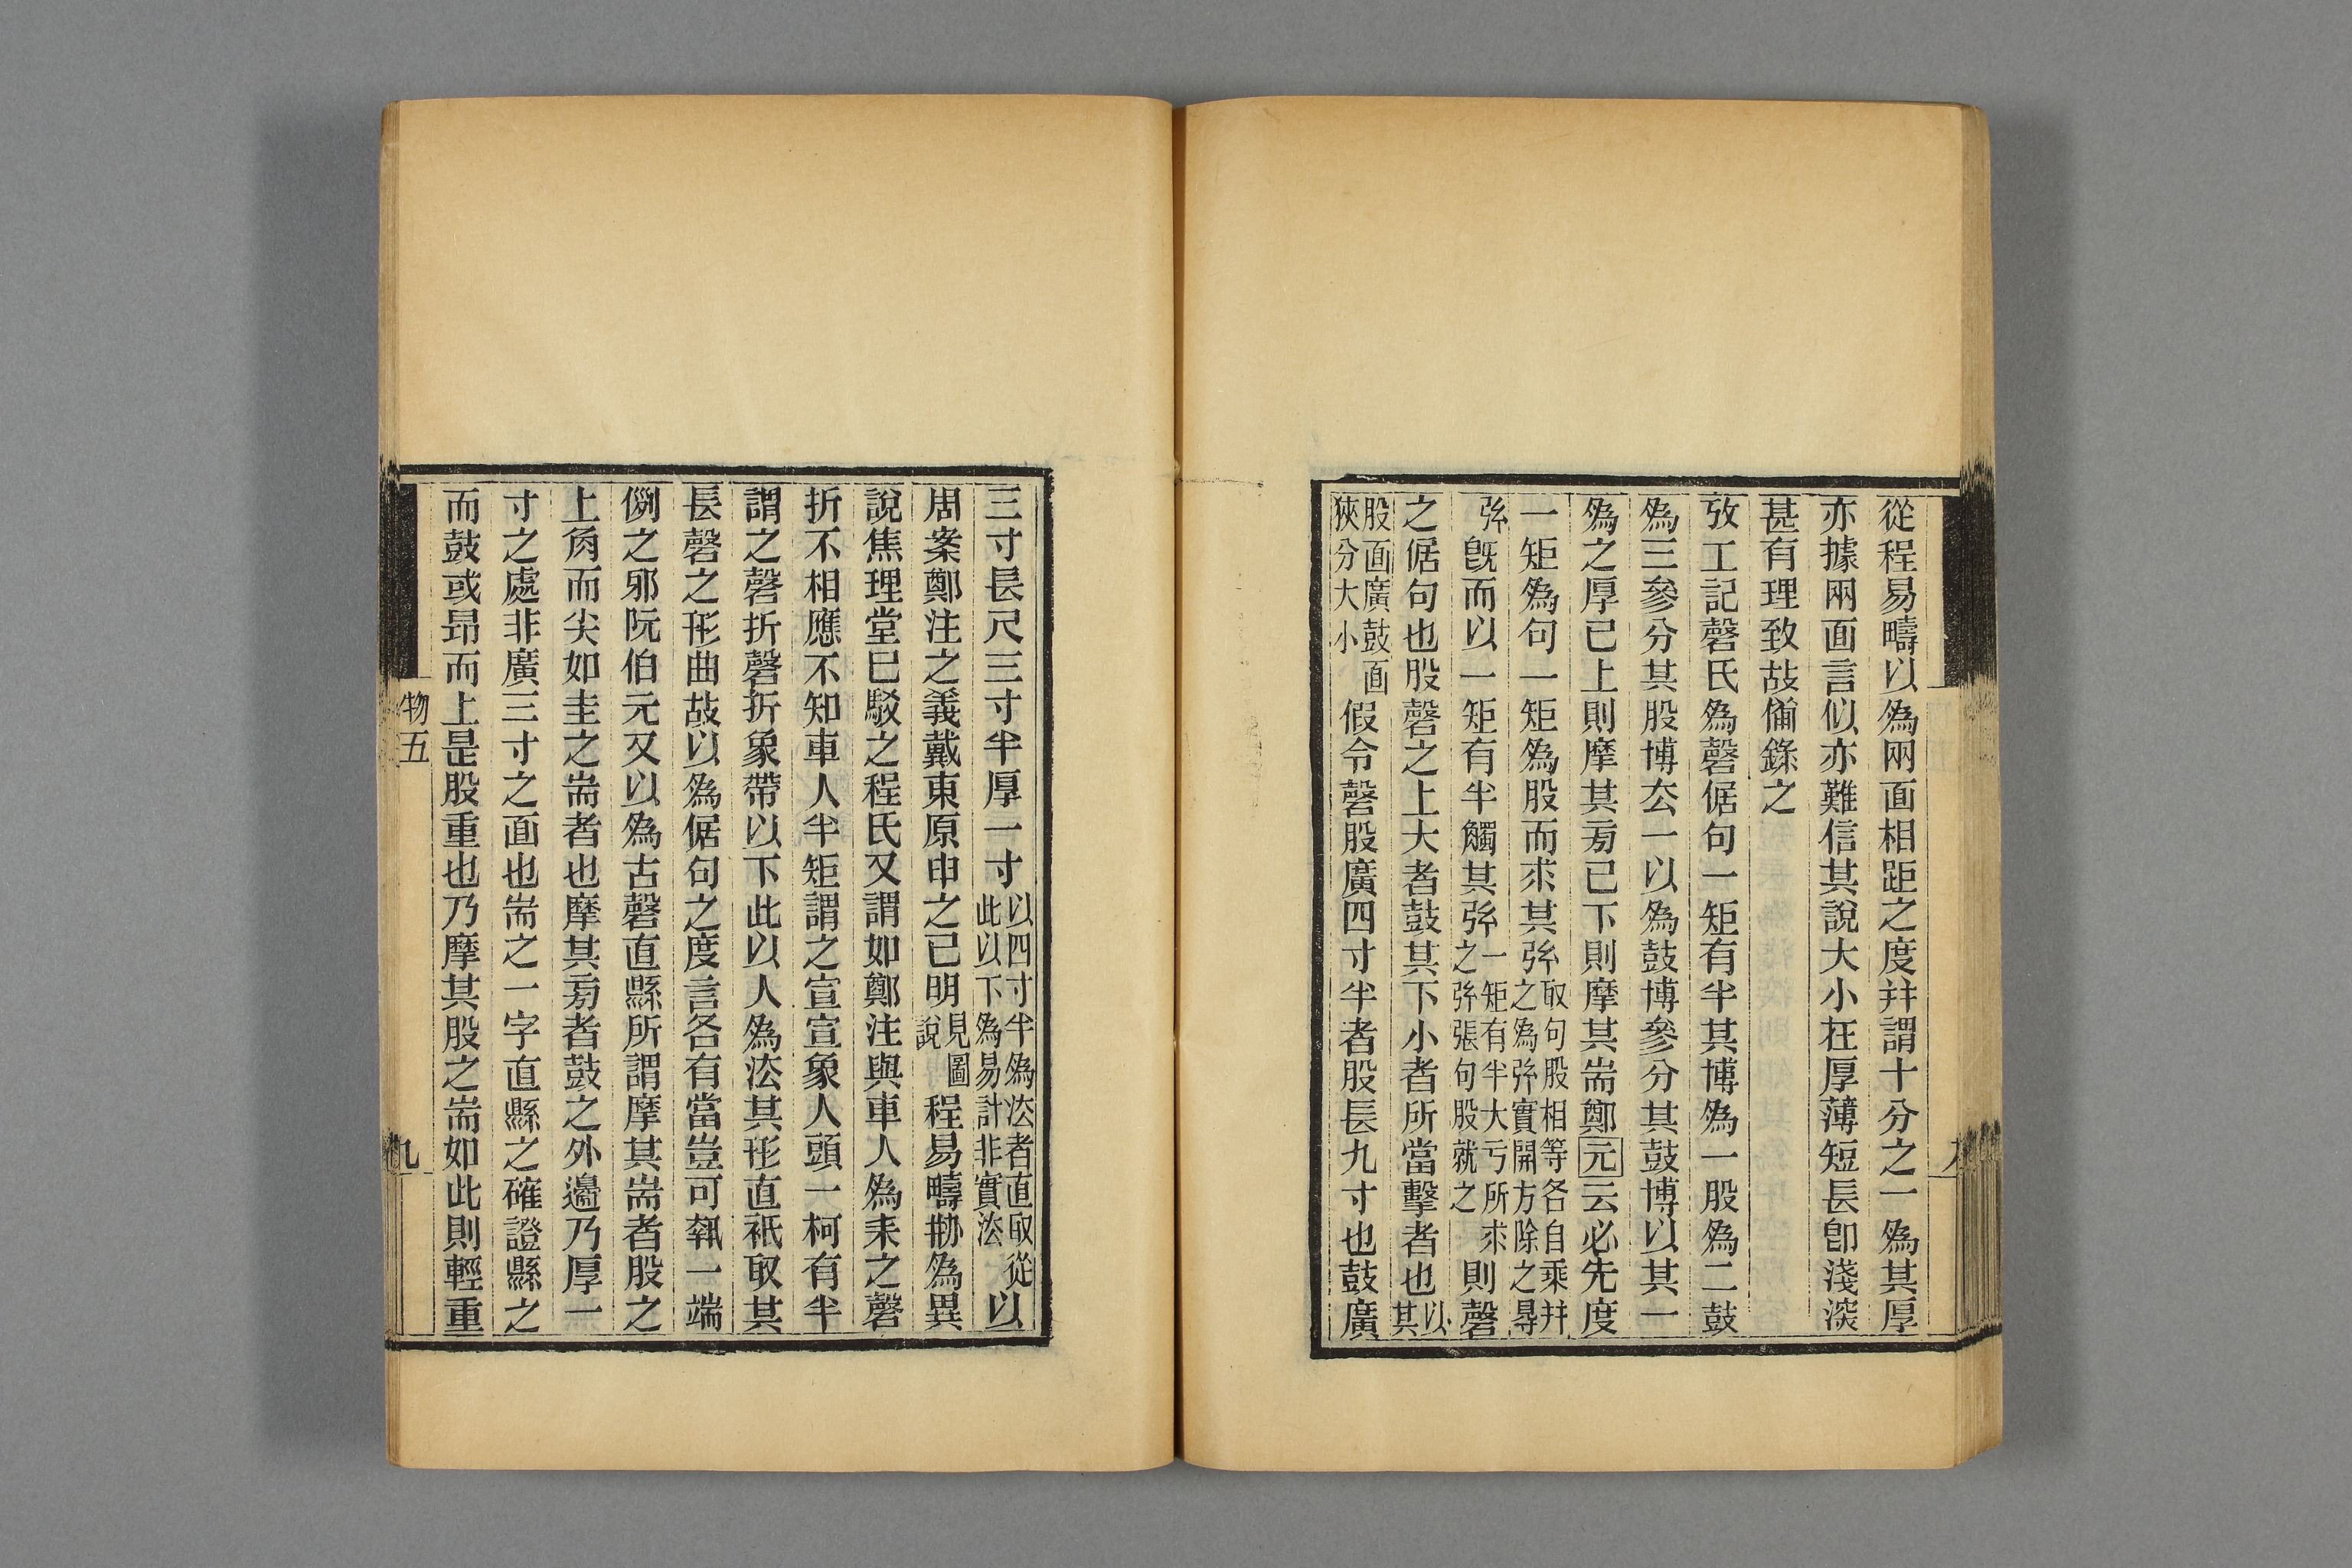 從程易疇以爲兩面相距之度幷謂十分之一爲其厚
亦據兩面言似亦難信其說大小在厚薄短長卽淺深
甚有理致故備錄之
攷工記磬氏爲磬倨句一矩有半其博爲一股爲二鼓
爲三參分其股博去一以爲鼓博參分其鼓博以其一
爲之厚已上則摩其㫄已下則摩其耑鄭元云必先度
一矩爲句一矩爲股而求其弦取句股相等各自乘幷之爲弦實開方除之得
弦旣而以一矩有半觸其弦一矩有半大亏所求之弦張句股就之則磬
之倨句也股磬之上大者鼓其下小者所當擊者也以其
股面廣鼓面狹分大小假令磬股廣四寸半者股長九寸也鼓廣
三寸長尺三寸半厚一寸以四寸半爲法者直取從此以下爲易計非實法以
周案鄭注之義戴東原申之已明見圖說程易疇刱爲異
說焦理堂已駁之程氏又謂如鄭注與車人爲耒之磬
折不相應不知車人半矩謂之宣宣象人頭一柯有半
謂之磬折磬折象帶以下此以人爲法其形直衹取其
長磬之形曲故以爲倨句之度言各有當豈可執一端
例之邪阮伯元又以爲古磬直縣所謂摩其耑者股之
上角而尖如圭之耑者也摩其㫄者鼓之外邊乃厚一
寸之處非廣三寸之面也耑之一字直縣之確證縣之
而鼓或昂而上是股重也乃摩其股之耑如此則輕重
物五
九